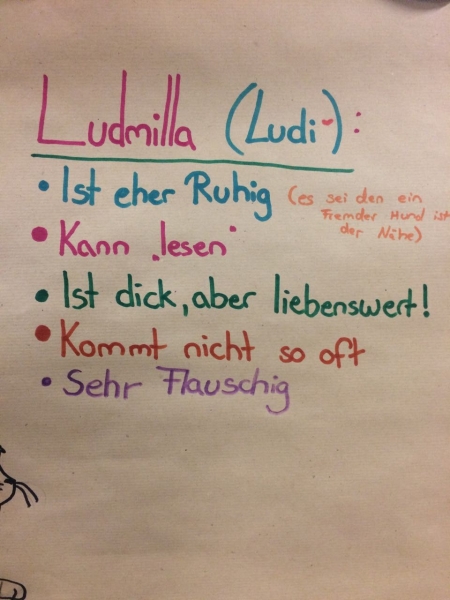 Ludmilla (Ludi❤):
• Ist eher Ruhig (es sei den ein
Fremder Hund ist
der Nähe)
• Kann „lesen“
• Ist dick, aber liebenswert!
• Kommt nicht so oft
• Sehr Flauschig